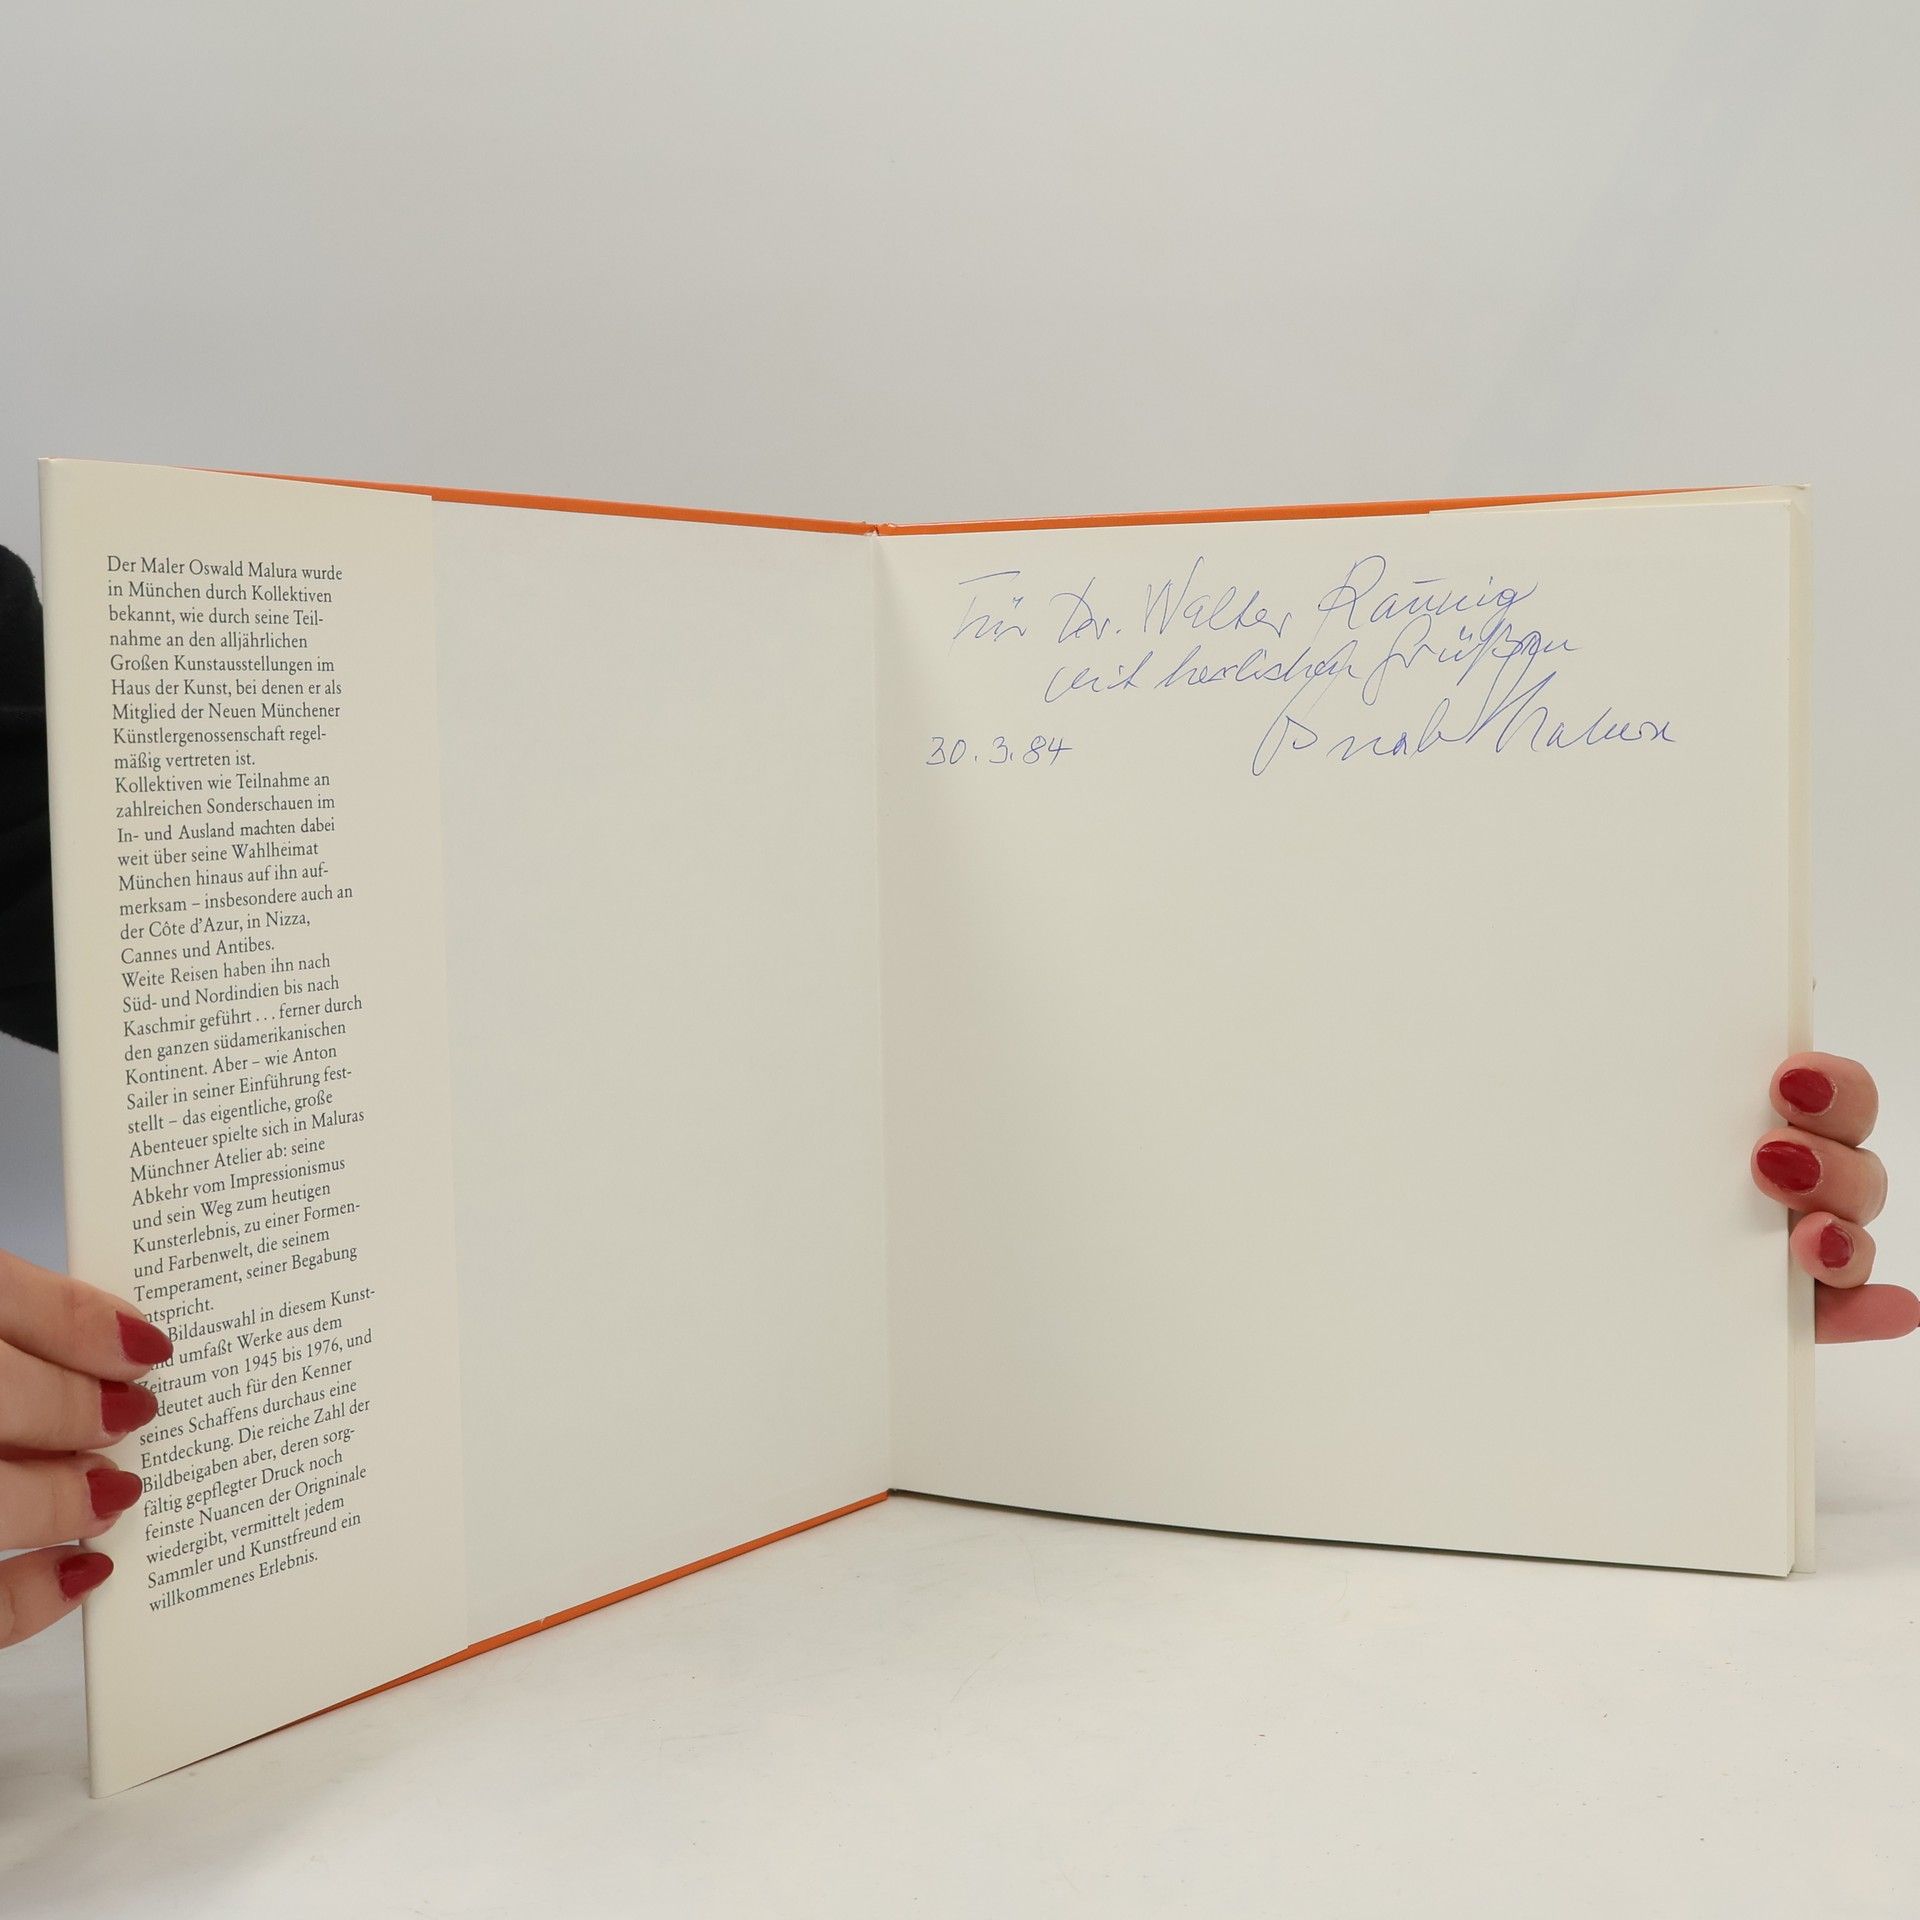 Der Maler Oswald Malura wurde
in München durch Kollektiven
bekannt, wie durch seine Teil-
nahme an den alljährlichen
Großen Kunstausstellungen im
Haus der Kunst, bei denen er als
Mitglied der Neuen Münchener
Künstlergenossenschaft regel-
mäßig vertreten ist.
Kollektiven wie Teilnahme an
zahlreichen Sonderschauen im
In- und Ausland machten dabei
weit über seine Wahlheimat
München hinaus auf ihn auf-
merksam – insbesondere auch an
der Côte d'Azur, in Nizza,
Cannes und Antibes.
Weite Reisen haben ihn nach
Süd- und Nordindien bis nach
Kaschmir geführt . . . ferner durch
den ganzen südamerikanischen
Kontinent. Aber – wie Anton
Sailer in seiner Einführung fest-
stellt – das eigentliche, große
Abenteuer spielte sich in Maluras
Münchner Atelier ab: seine
Abkehr vom Impressionismus
und sein Weg zum heutigen
Kunsterlebnis, zu einer Formen-
und Farbenwelt, die seinem
Temperament, seiner Begabung
ntspricht.
Bildauswahl in diesem Kunst-
umfaßt Werke aus dem
Zeitraum von 1945 bis 1976, und
deutet auch für den Kenner
seines Schaffens durchaus eine
Entdeckung. Die reiche Zahl der
Bildbeigaben aber, deren sorg-
fältig gepflegter Druck noch
feinste Nuancen der Origninale
wiedergibt, vermittelt jedem
Sammler und Kunstfreund ein
willkommenes Erlebnis.
Für Dr. Walter Raunig
mit herzlichen Grüßen
Oswald Malura
30.3.84